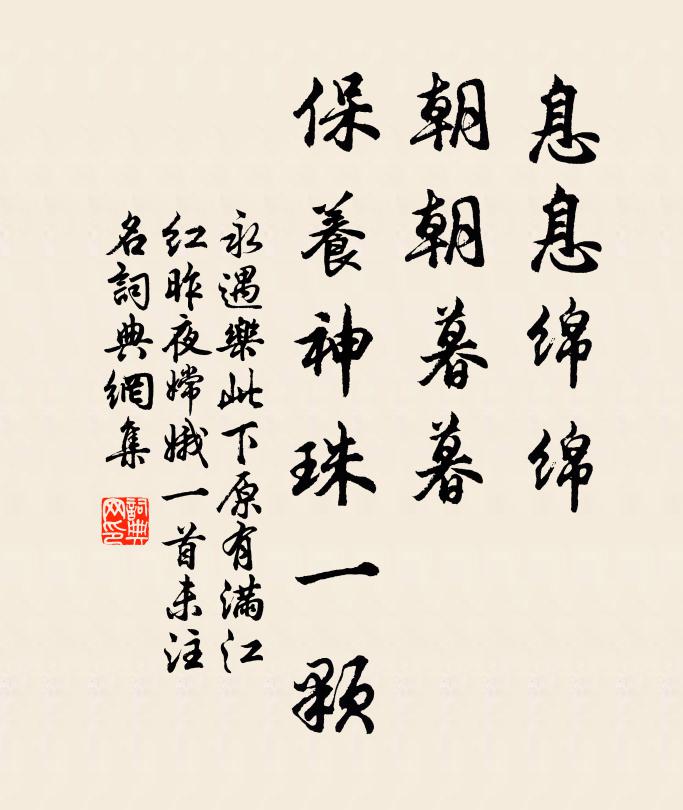 息息绵绵
朝朝暮暮
保養神珠一颗
永遇樂此下原有满江
红昨夜嫦娥一首未注
名詞典網集
詞典
网印